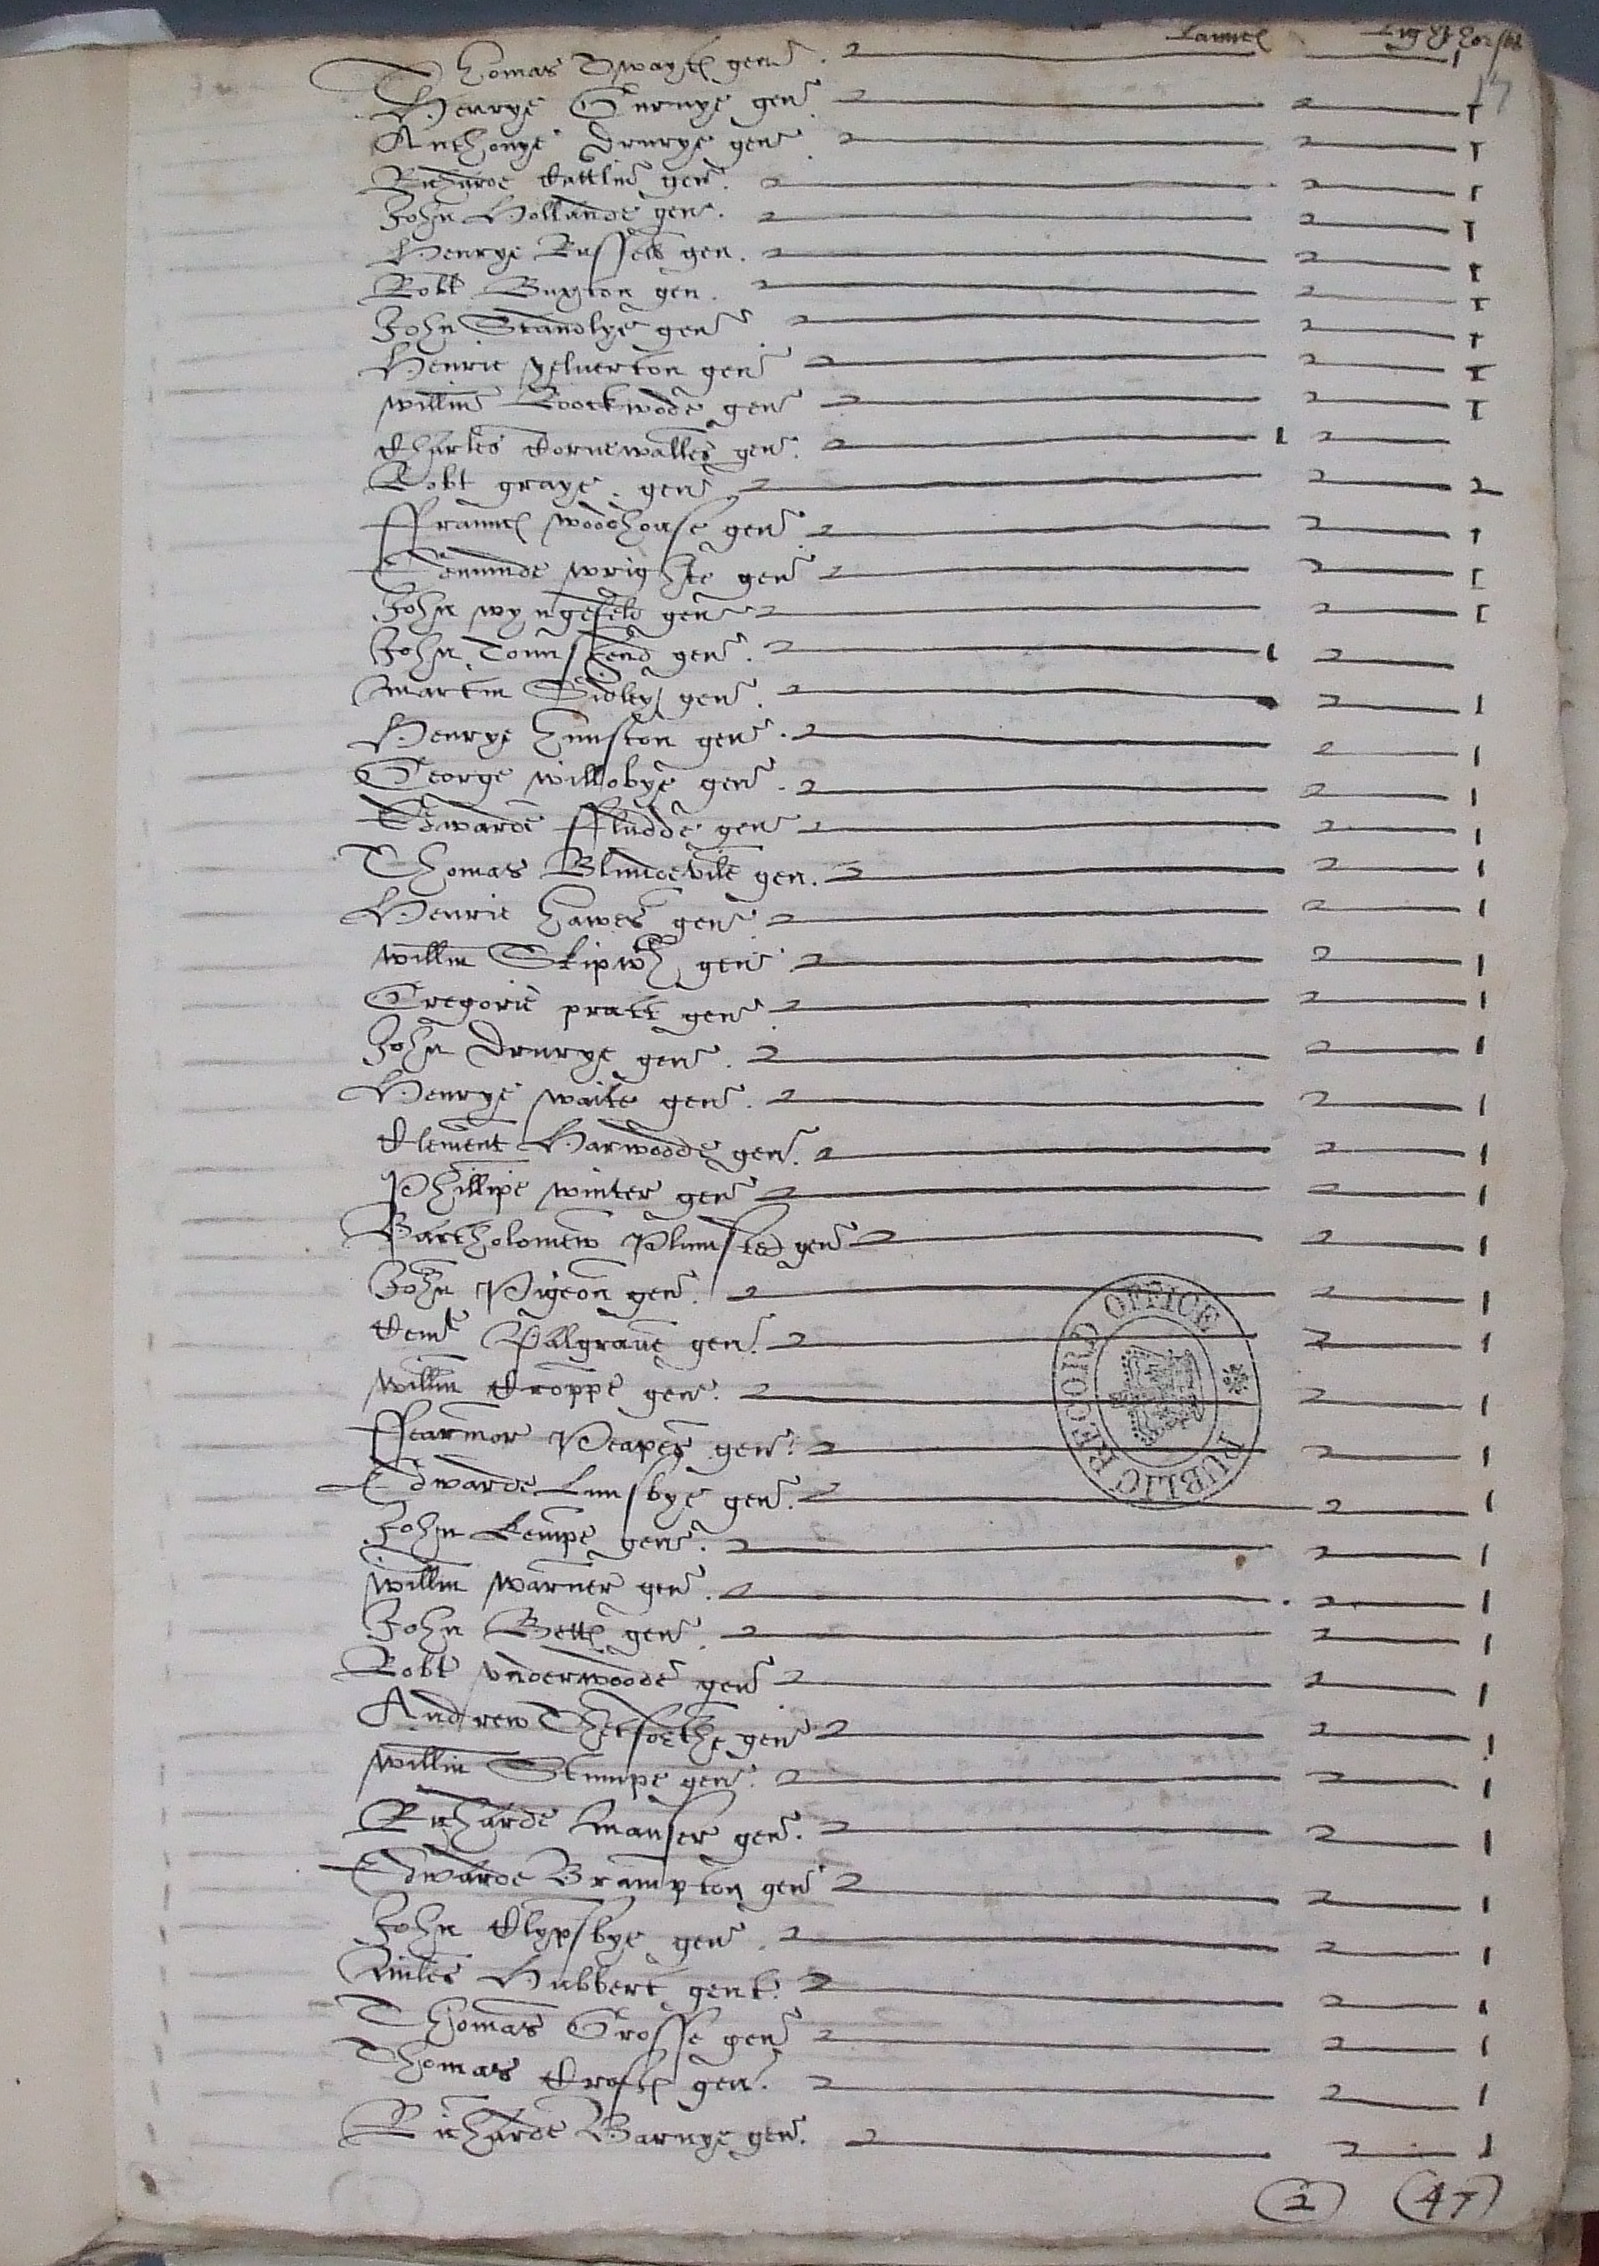 Launc Light horse
17
Thomas Twayts gent. 1
Henrye Gurnye gent. 1
Anthonye Drurye gent. 1
Richarde Cattlin gent. 1
John Hollande gent. 1
Henrye Russell gen. 1
Robt Buxton gen. 1
John Standlye gent 1
Henrie yelverton gent 1
Willm Roockwode gent 1
Charles Cornewalles gent. 1
Robt graye gent 2
ffraunc woodhouse gent 1
Edmunde wrighte gent 1
John wyngefeld gent 1
John Tounshend gent. 1
Martin Sidley gent. 1
Henrye hunston gent. 1
George willobye gent. 1
Edwarde ffludde gent 1
Thomas Blundevile gen. 1
Henrie hawes gent 1
willm Skipwth gent 1
Gregorie pratt gent 1
John Drurye gent. 1
Henrye waite gent. 1
Clement Harwodde gent. 1
Phillipe winter gent 1
Bartholomew Plumsted gent 1
John Pigeon gent. 1
Clemt Pallgrave gent. 1
Willm Croppe gent. 1
ffearmor Peapes gent. 1
Edwarde Lunsbye gent. 1
John Kempe gent. 1
willm warner gent. 1
John Betts gent. 1
Robt underwoode gent 1
Andrew Thetforthe gent 1
Willm Stumpe gent. 1
Richarde Manser gent. 1
Edwarde Brampton gent 1
John Clypsbye gent. 1
Miles Hubbert gent. 1
Thomas Grosse gent 1
Thomas Crofts gent. 1
Richarde Barnye gent. 1
PUBLIC RECORD OFFICE
2 47